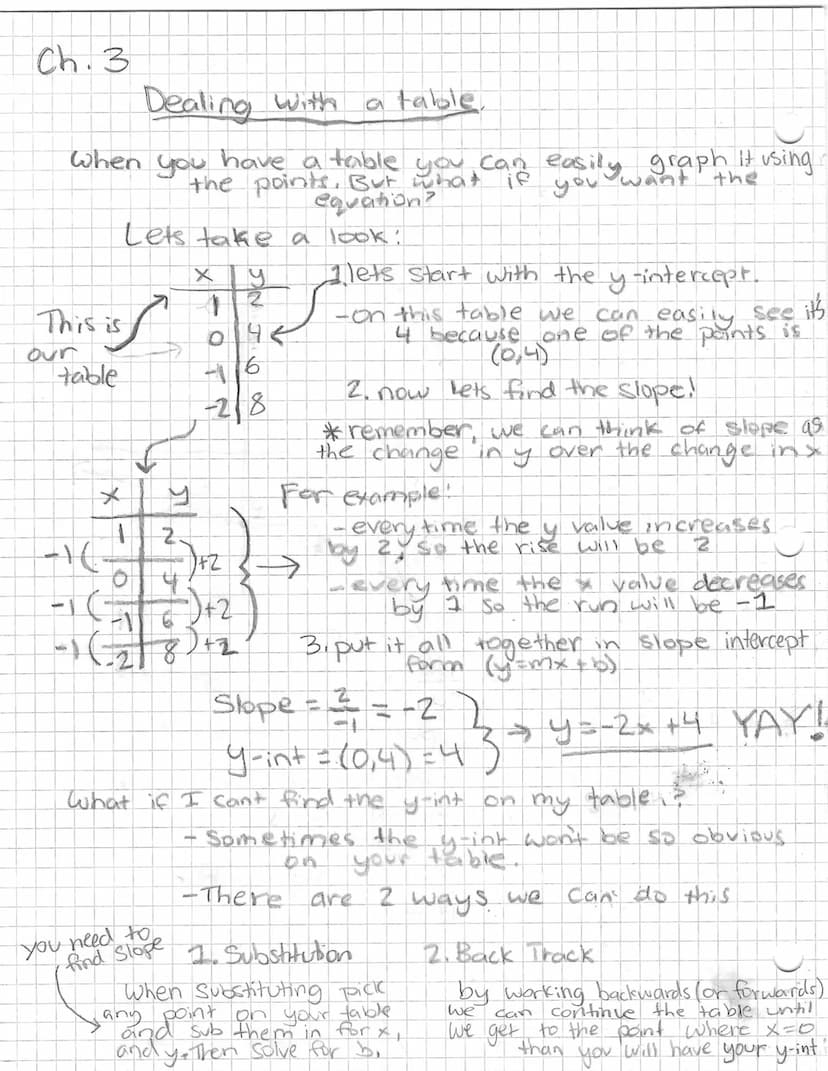 Ch. 3
Dealing with a table.
When you have a table you can easily graph it using
the points. But what if you want the
equation?
Lets take a look:
x | y
1 | 2
0 | 4
-1 | 6
-2 | 8
This is
our
table
1. lets start with the y-intercept.
-on this table we can easily see it's
4 because one of the points is
(0,4)
2. now lets find the slope!
* remember, we can think of slope as
the change in y over the change in x
x | y
1 | 2
0 | 4
-1 | 6
-2 | 8
-1 ( ) +2
-1 ( ) +2
-1 ( ) +2
For example:
- every time the y value increases
by 2, so the rise will be 2
- every time the x value decreases
by 1 so the run will be -1
3. put it all together in slope intercept
form (y=mx+b)
Slope = 2/-1 = -2
y-int = (0,4) = 4
} → y=-2x+4 YAY!
What if I cant find the y-int on my table?
- Sometimes the y-int won't be so obvious
on your table.
- There are 2 ways we can do this
you need to
find slope
1. Substitution
When substituting pick
any point on your table
and sub them in for x,
and y. Then solve for b.
2. Back Track
by working backwards (or forwards)
we can continue the table until
we get to the point where x=0
than you will have your y-int